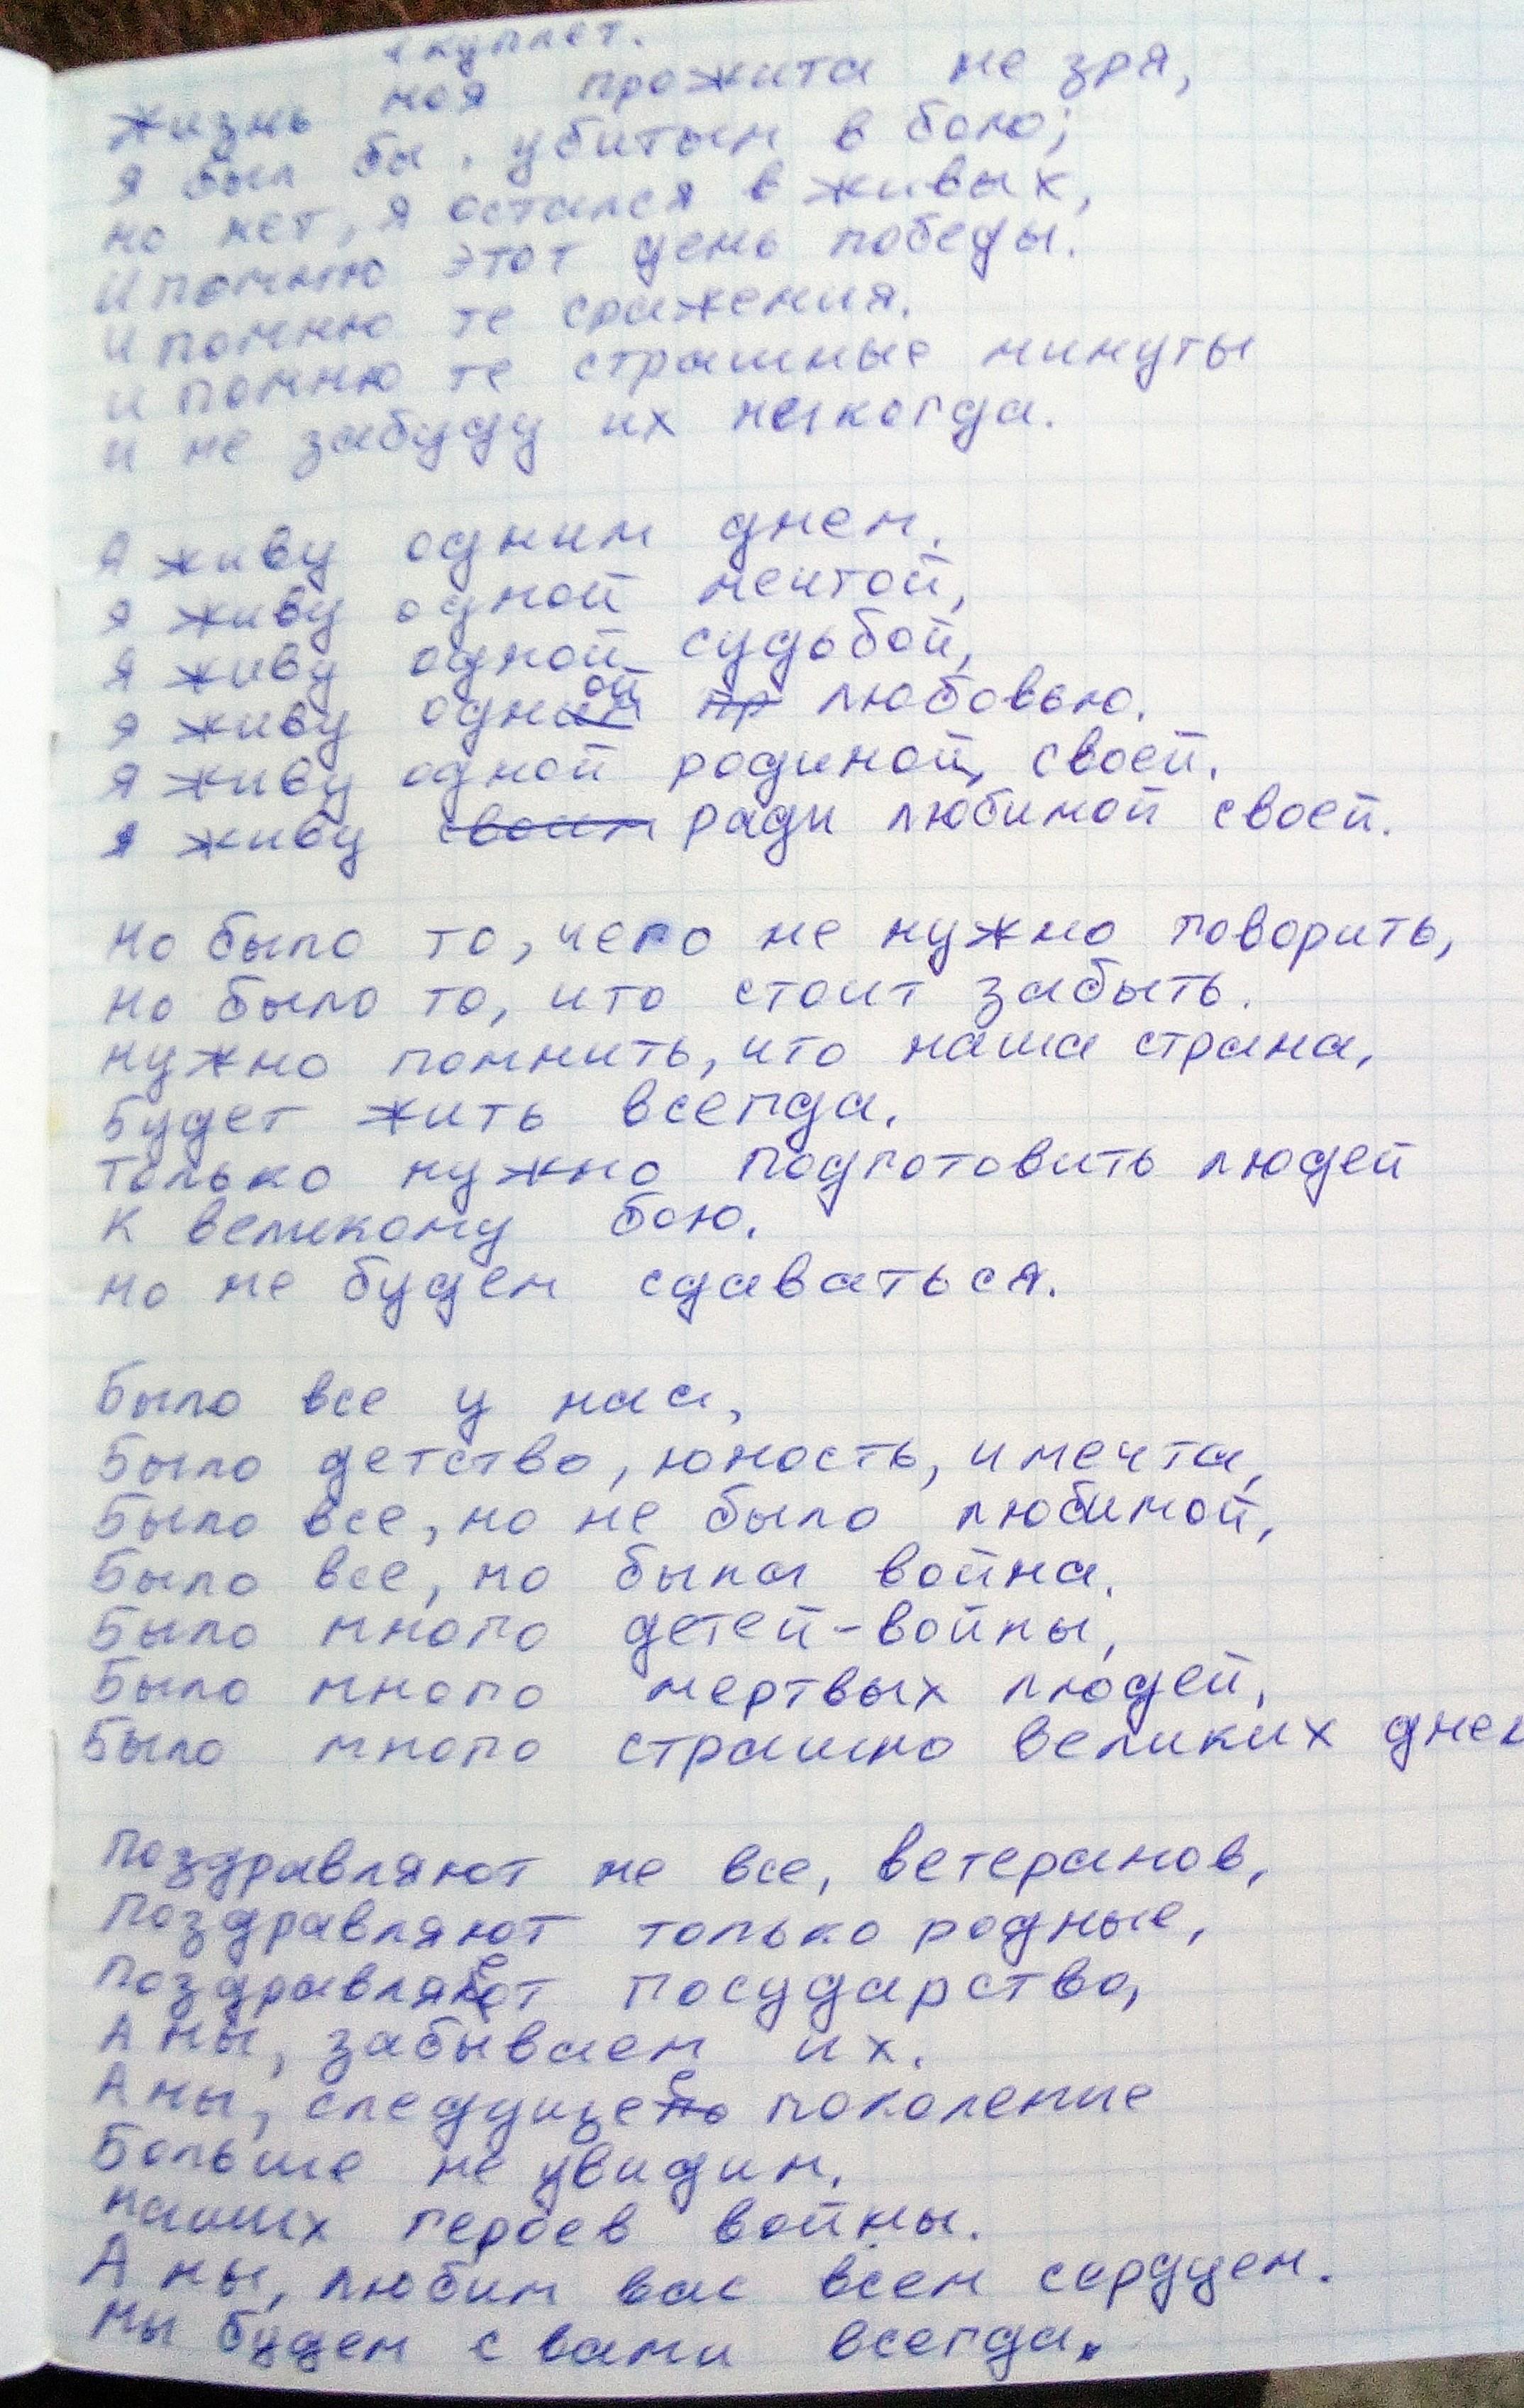 1 куплет.
Жизнь моя прожита не зря,
Я был бы, убитым в бою;
но нет, я остался в живых,
И помню этот день победы.
И помню те сражения.
И помню те страшные минуты
и не забуду их никогда.
Я живу одним днем.
Я живу одной мечтой,
Я живу одной судьбой,
Я живу одной любовью.
Я живу одной родиной, своей.
Я живу ради любимой своей.
Но было то, чего не нужно говорить,
Но было то, что стоит забыть.
Нужно помнить, что наша страна,
Будет жить всегда.
Только нужно подготовить людей
К великому бою.
Но не будем сдаваться.
Было все у нас,
Было детство, юность, и мечта,
Было все, но не было любимой,
Было все, но была война.
Было много детей-войны,
Было много мертвых людей,
Было много страшно великих дней
Поздравляют не все, ветеранов,
Поздравляют только родные,
Поздравляет государство,
А мы, забываем их.
А мы, следущее поколение
Больше не увидим,
наших героев войны.
А мы, любим вас всем сердцем.
Мы будем с вами всегда.